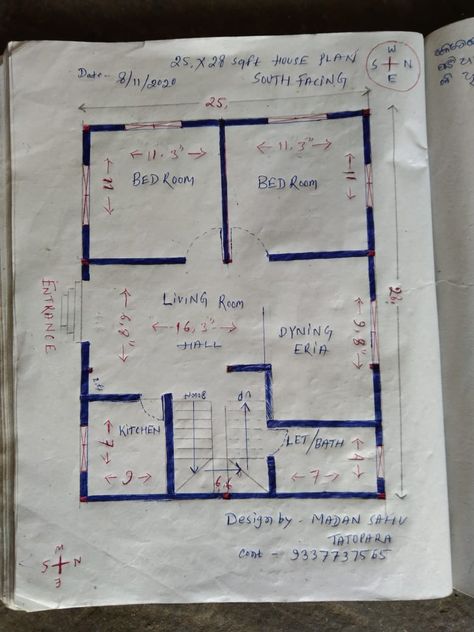 25, X 28 sqft HOUSE PLAN
Date - 8/11/2020
SOUTH FACING
W
S N
E
25,
11.3"
11.3"
11
BED ROOM
BED ROOM
11
ENTRANCE
LIVING ROOM
16,3"
HALL
6,9"
DYNING
ERIA
9,8"
28,
KITCHEN
7
6
DOWN
UP
6,6
LET/BATH
7
4
Design by - MADAN SAHU
TATOPARA
Cont - 9337737565
W
S N
E